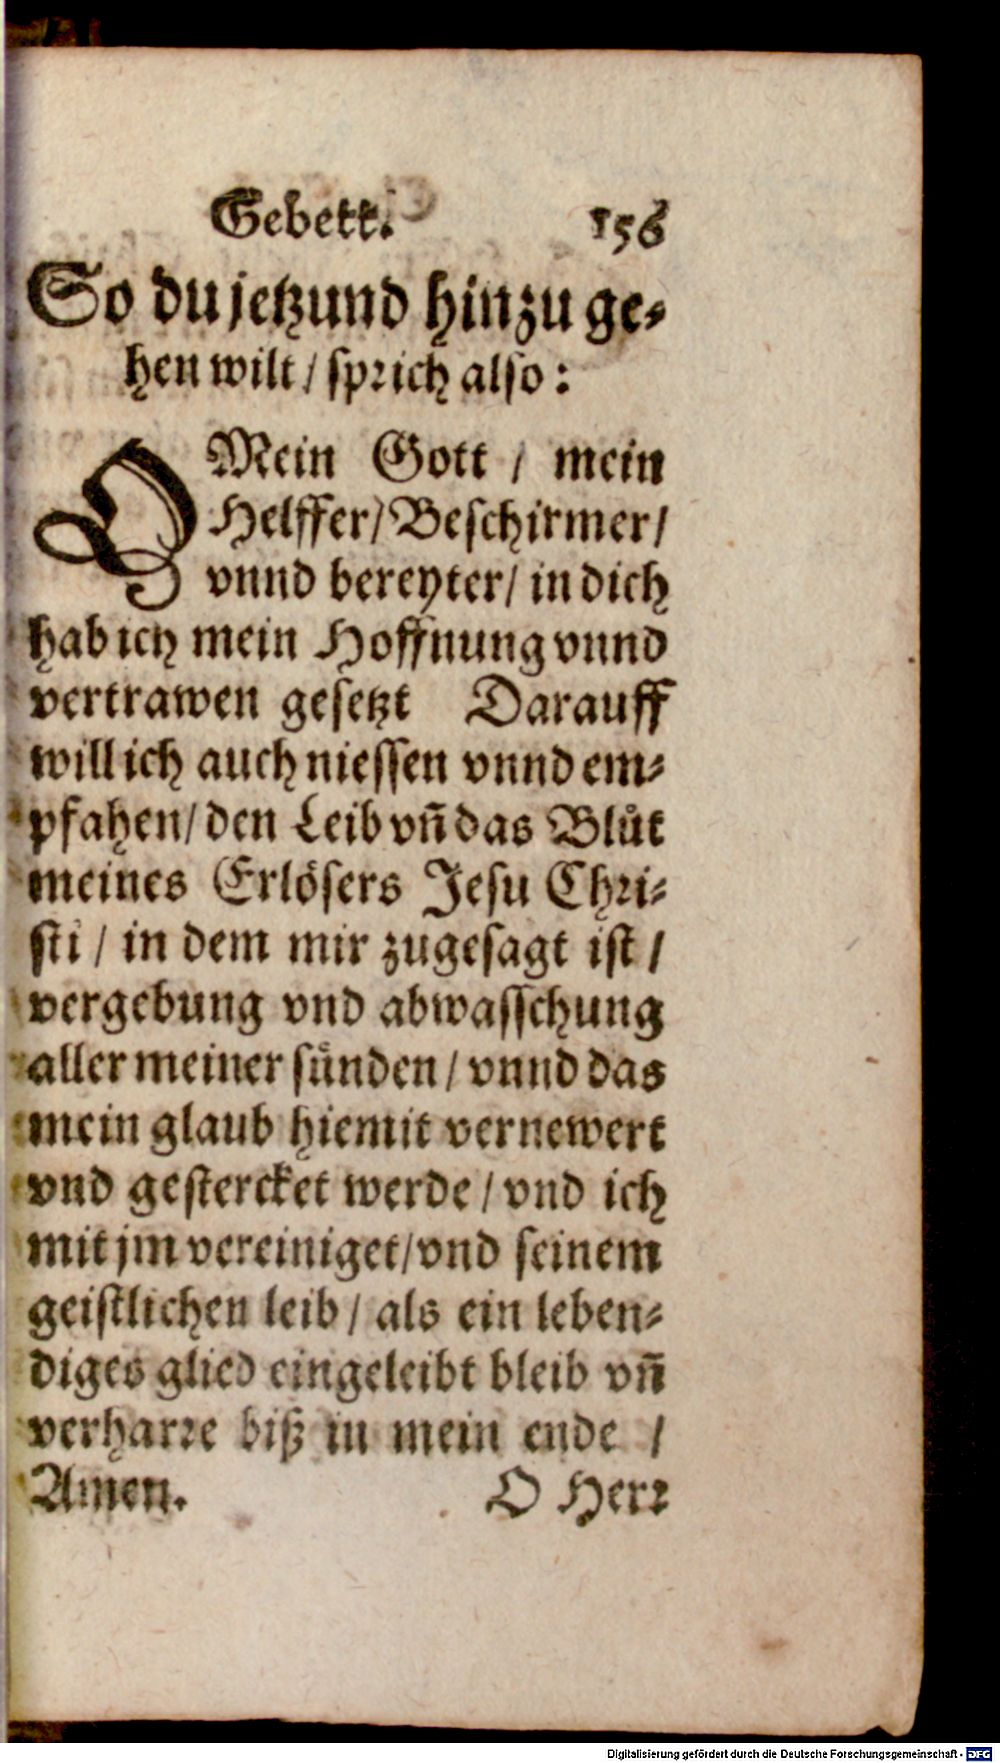 Gebett. 156
So du jetzund hinzu ge-
hen wilt / sprich also:
O Mein Gott / mein
Helffer / Beschirmer /
vnnd bereyter / in dich
hab ich mein Hoffnung vnnd
vertrawen gesetzt Darauff
will ich auch niessen vnnd em-
pfahen / den Leib vn̄ das Blůt
meines Erlösers Jesu Chri-
sti / in dem mir zugesagt ist /
vergebung vnd abwasschung
aller meiner sünden / vnnd das
mein glaub hiemit vernewert
vnd gestercket werde / vnd ich
mit jm vereiniget / vnd seinem
geistlichen leib / als ein leben-
diges glied eingeleibt bleib vn̄
verharre biß in mein ende /
Amen. O Herr
Digitalisierung gefördert durch die Deutsche Forschungsgemeinschaft - DFG